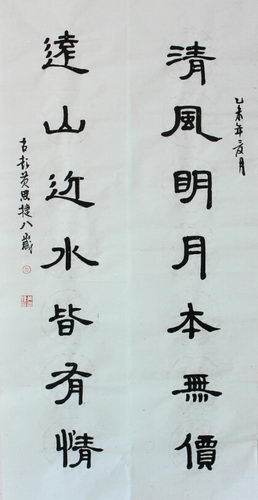 乙未年夏月
清風明月本無價
遠山近水皆有情
黄思捷八歲